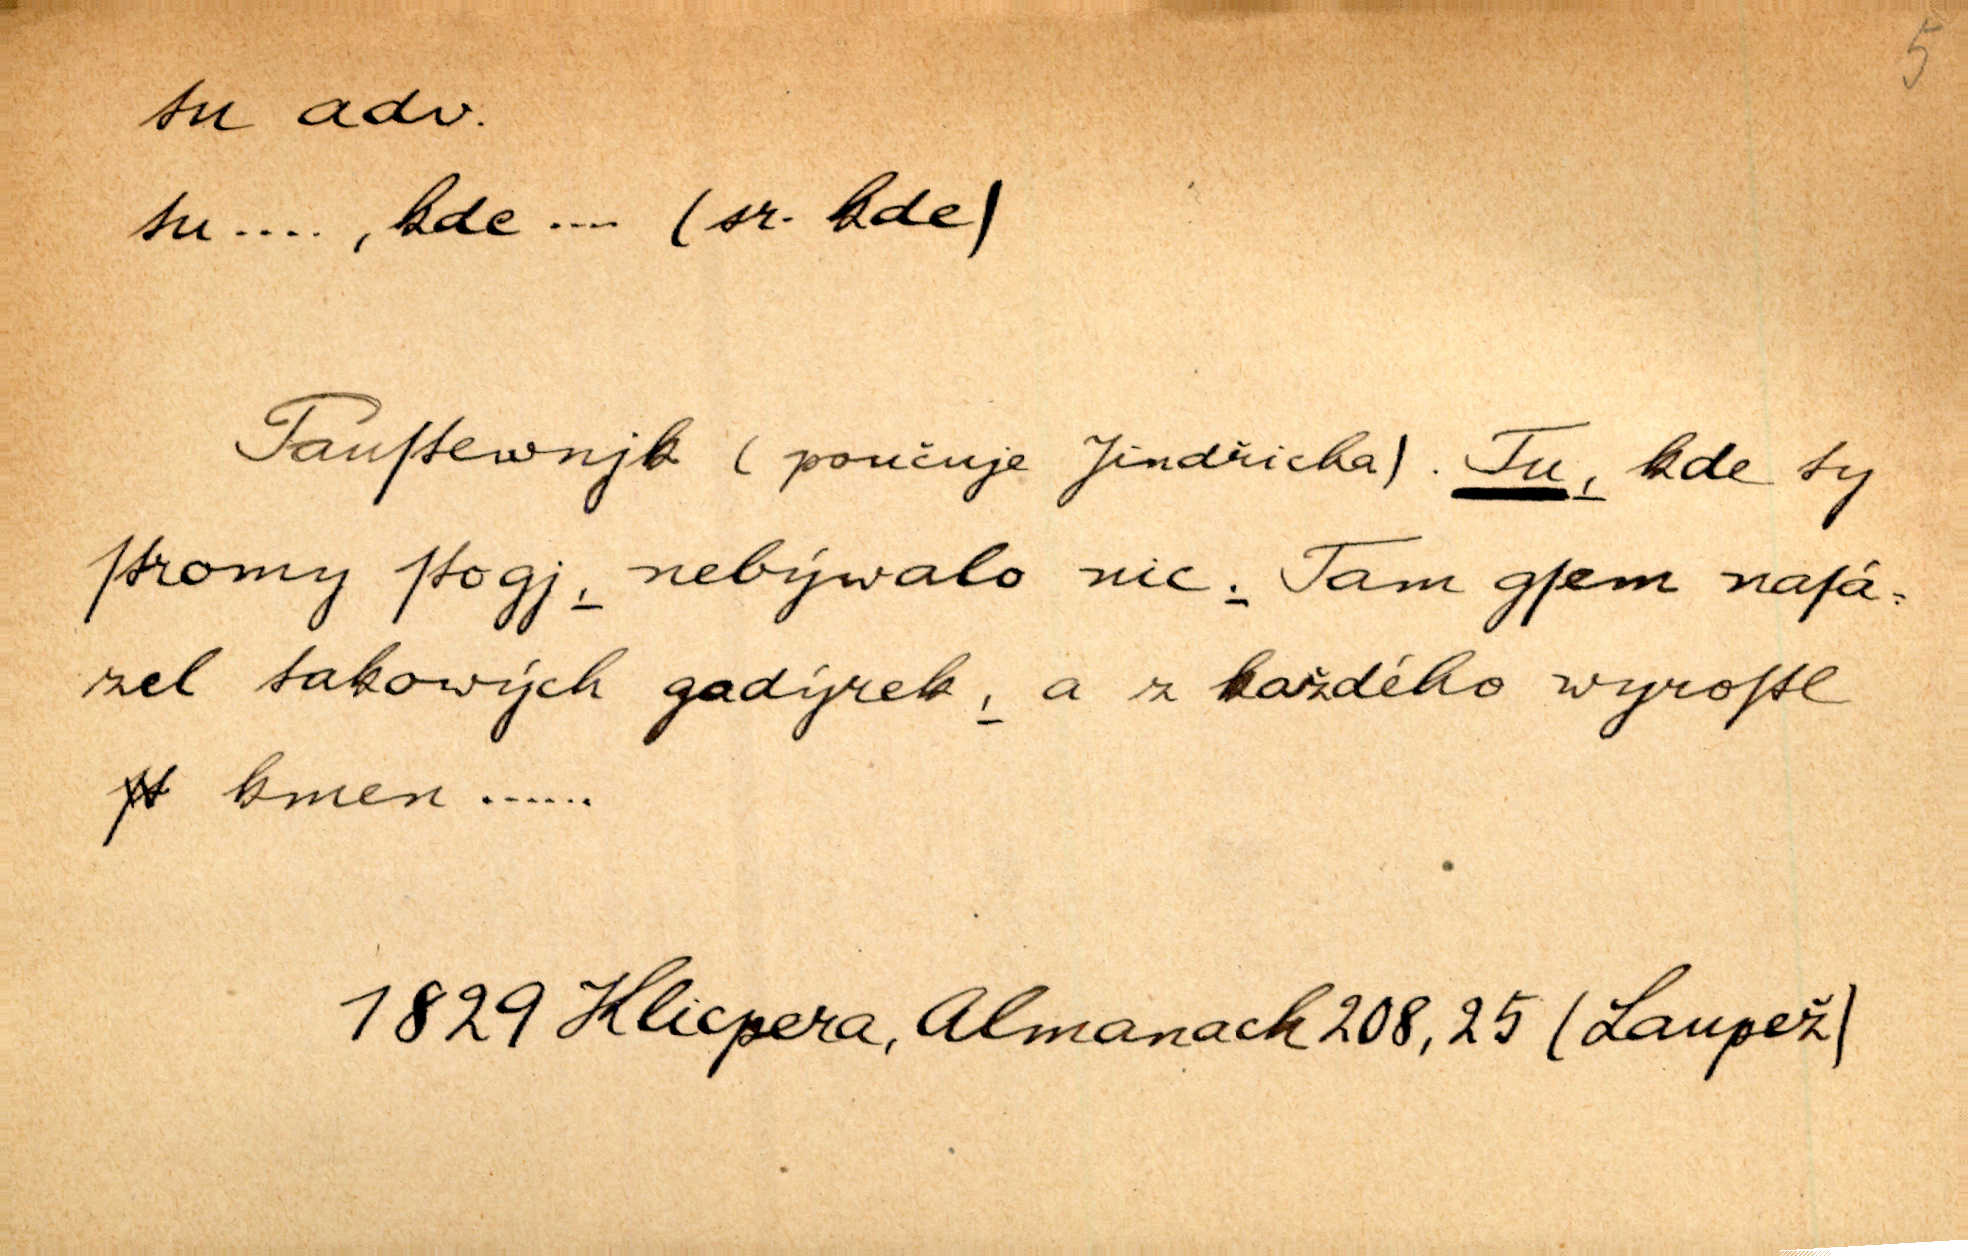 5
tu adv.
tu ...., kde .... (sr. kde)
Pauſtewnjk (poučuje Jindřicha). Tu, kde ty
ſtromy ſtogj, nebýwalo nic. Tam gſem naſá-
zel takowých gadýrek, a z každého wyroſtl
kmen ......
1829 Klicpera, Almanach 208, 25 (Laupež)